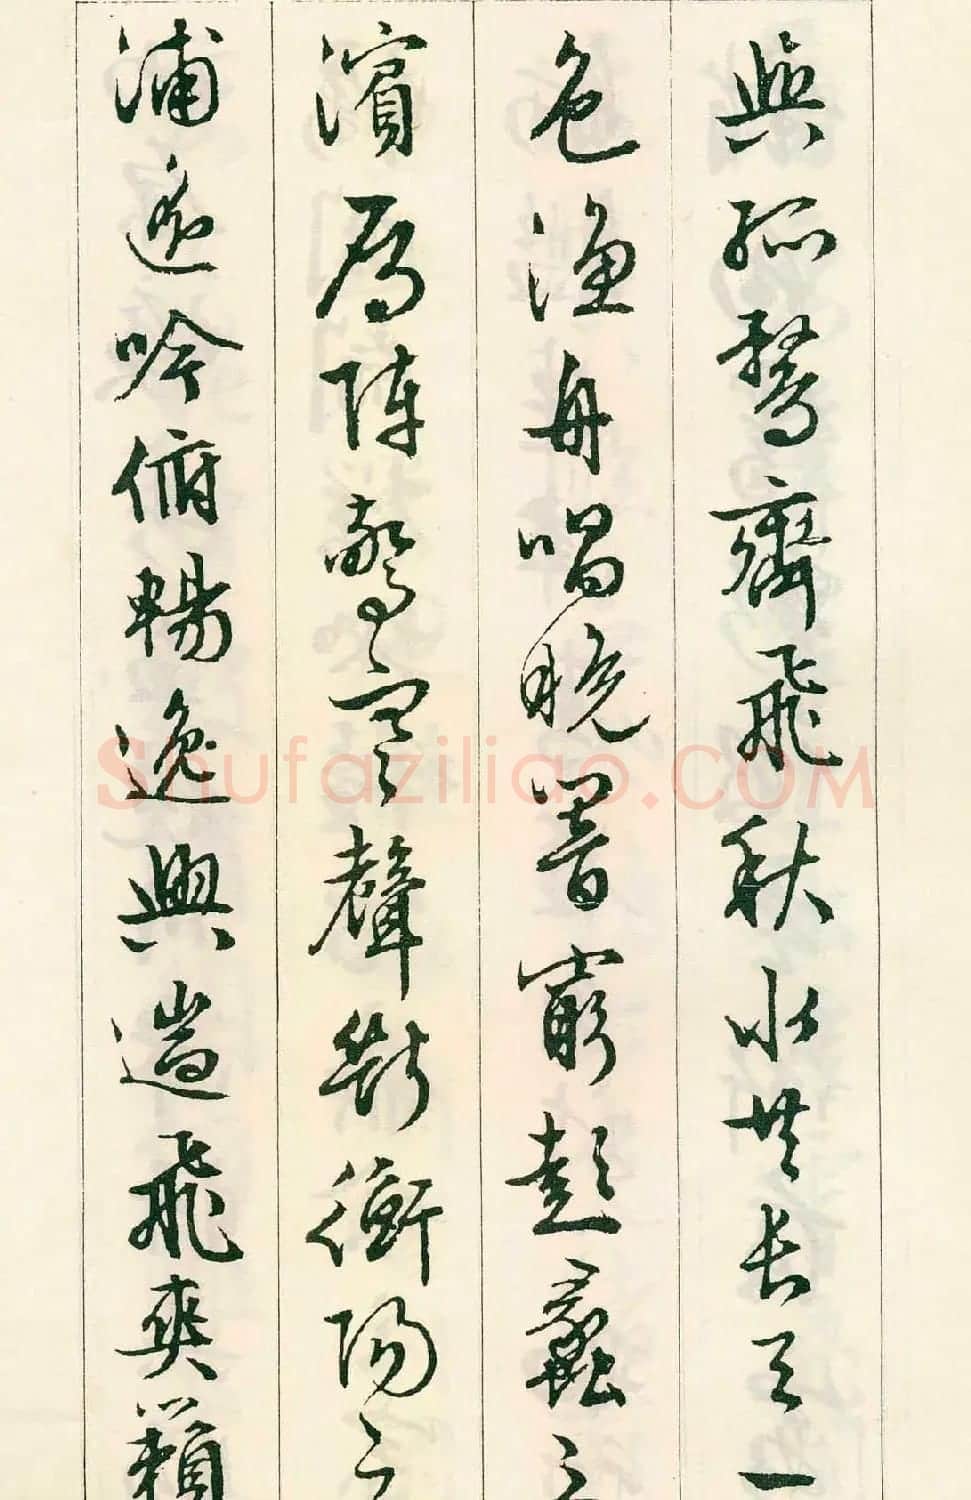 與孤鶩齊飛秋水共長天一
色漁舟唱晚響窮彭蠡之
濱鴈陣驚寒聲斷衡陽之
浦遥吟俯暢逸興遄飛爽籟
Shufaziliao.COM